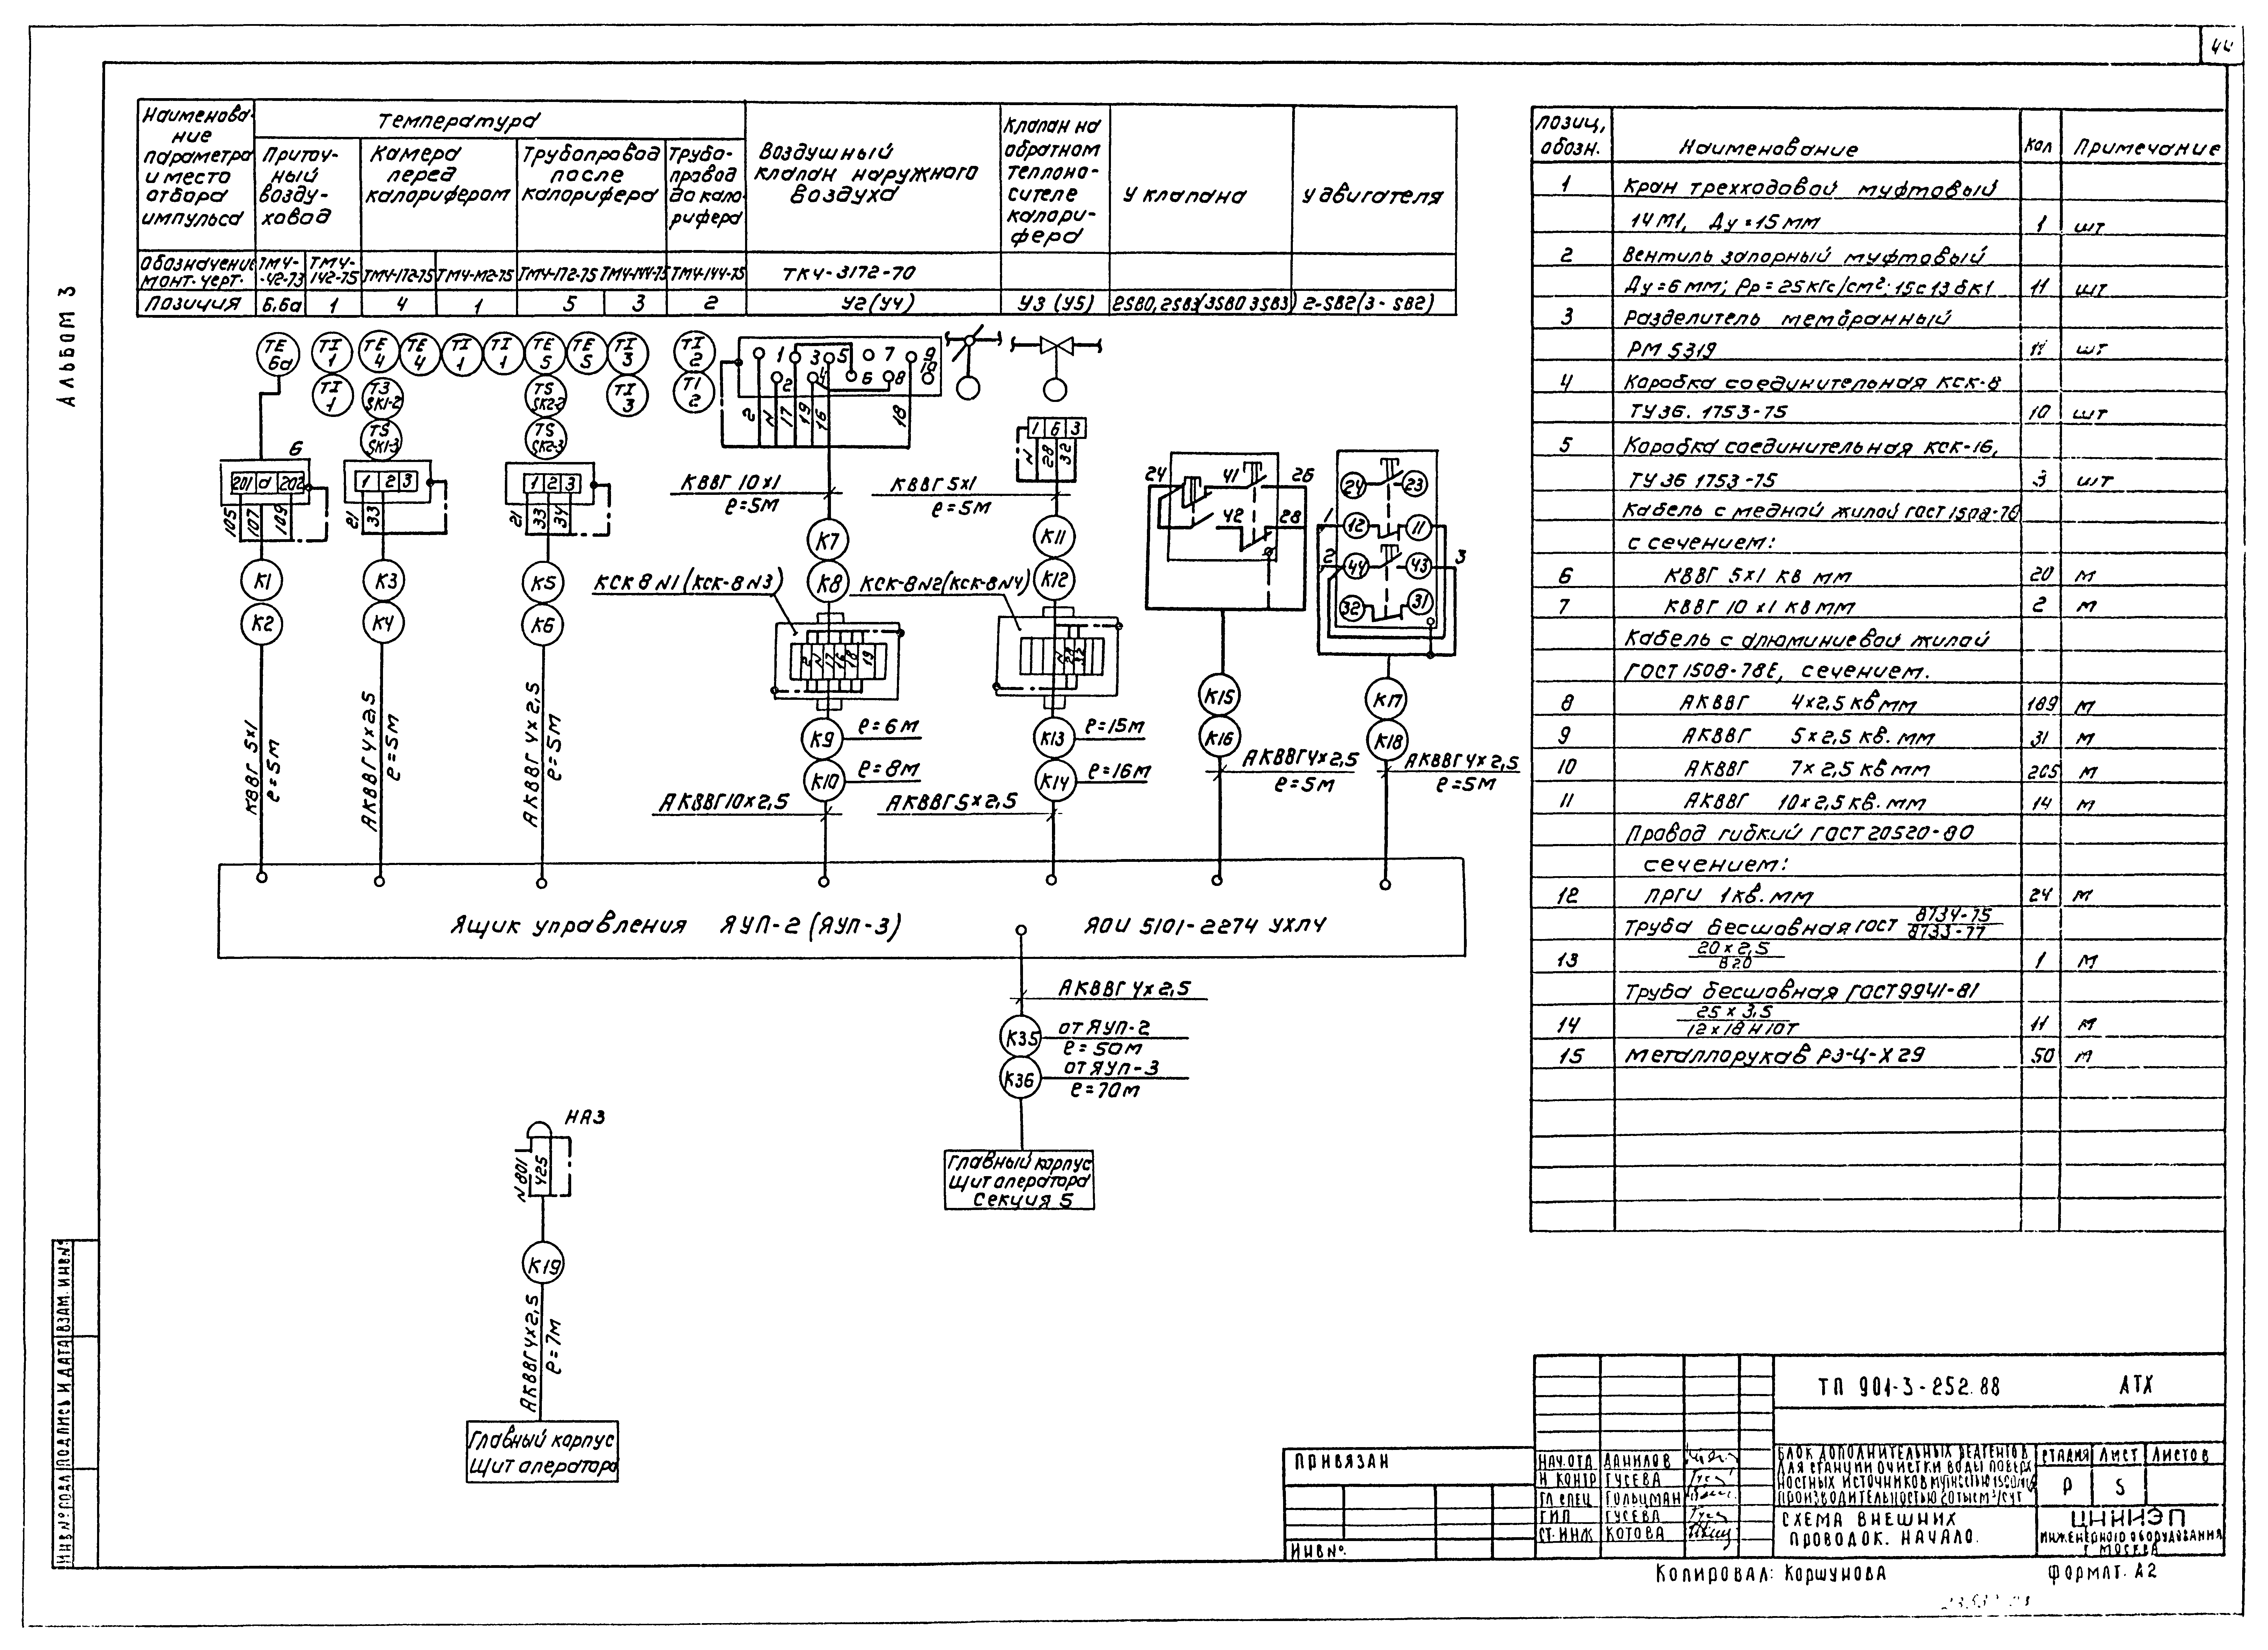 44
Альбом 3
Наименова-
ние
параметра
и место
отбора
импульса
Температура
Приточ-
ный
возду-
ховод
Камера
перед
калорифером
Трубопровод
после
калорифера
Трубо-
провод
до кало-
рифера
Воздушный
клапан наружного
воздуха
Клапан на
обратном
теплоно-
сителе
калори-
фера
У клапана
У двигателя
Обозначение
монт. черт.
ТМ4-
-42-73
ТМ4-
142-75
ТМ4-172-75
ТМ4-М2-75
ТМ4-172-75
ТМ4-144-75
ТМ4-144-75
ТК4-3172-70
Позиция
6,6а
1
4
1
5
3
2
У2(У4)
У3 (У5)
2SB0, 2SB3(3SB0 3SB3)
2-SB2(3-SB2)
TE 6а
TI 1
TE 4
TE 4
TI 1
TI 1
TE 5
TE 5
TI 3
TI 2
TI 1
ТЗ SK1-2
TS SK2-2
TI 3
TI 2
TS SK1-3
TS SK2-3
1 3 5 7 9
2 4 6 8 10
2 N 17 19 16 18
6
201 а 202
105 107 109
1 2 3
21 33
1 2 3
21 33 34
1 6 3
N 28 32
КВВГ 10х1
ℓ=5м
КВВГ 5х1
ℓ=5м
24 41 26
42 28
24 23
1 12 11
2 44 43 3
32 31
К1
К2
К3
К4
К5
К6
К7
К8
К11
К12
КСК 8 N1 (КСК-8 N3)
КСК-8 N2(КСК-8 N4)
2 N 17 16 18 19
N 28 32
К9
ℓ=6м
К10
ℓ=8м
К13
ℓ=15м
К14
ℓ=16м
К15
К16
К17
К18
КВВГ 5х1
ℓ=5м
АКВВГ 4х2,5
ℓ=5м
АКВВГ 4х2,5
ℓ=5м
АКВВГ 10х2,5
АКВВГ 5х2,5
АКВВГ 4х2,5
ℓ=5м
АКВВГ 4х2,5
ℓ=5м
Ящик управления ЯУП-2 (ЯУП-3) ЯОИ 5101-2274 УХЛ4
АКВВГ 4х2,5
К35
от ЯУП-2
ℓ=50м
К36
от ЯУП-3
ℓ=70м
Главный корпус
Щит оператора
Секция 5
НА3
N801
425
К19
АКВВГ 4х2,5
ℓ=7м
Главный корпус
Щит оператора
Позиц, обозн. Наименование Кол Примечание
1 Кран трехходовой муфтовый
14М1, Ду=15мм 1 шт
2 Вентиль запорный муфтовый
Ду=6мм; Рр=25кгс/см²; 15с13бк1 11 шт
3 Разделитель мембранный
РМ 5319 11 шт
4 Коробка соединительная КСК-8
ТУ36.1753-75 10 шт
5 Коробка соединительная КСК-16,
ТУ36 1753-75 3 шт
Кабель с медной жилой ГОСТ 1508-78
с сечением:
6 КВВГ 5х1 кв мм 20 м
7 КВВГ 10х1 кв мм 2 м
Кабель с алюминиевой жилой
ГОСТ 1508-78Е, сечением.
8 АКВВГ 4х2,5 кв мм 189 м
9 АКВВГ 5х2,5 кв. мм 31 м
10 АКВВГ 7х2,5 кв мм 205 м
11 АКВВГ 10х2,5 кв. мм 14 м
Провод гибкий ГОСТ 20520-80
сечением:
12 ПРГИ 1кв. мм 24 м
Труба бесшовная ГОСТ 8734-75/8733-77
13 20х2,5/В20 1 м
Труба бесшовная ГОСТ 9941-81
14 25х3,5/12х18Н10Т 11 м
15 Металлорукав РЗ-Ц-Х 29 50 м
ТП 901-3-252.88 АТХ
Блок дополнительных реагентов
для станции очистки воды поверх
ностных источников мутностью 1500мг/л
производительностью 20тыс м³/сут
Стадия Лист Листов
Р 5
Схема внешних
проводок. Начало.
ЦНИИЭП
инженерного оборудования
г. Москва
Нач.отд Данилов
Н контр Гусева
Гл спец Гольцман
ГИП Гусева
Ст. инж Котова
Привязан
Инв №.
Инв № подл Подпись и дата Взам. инв №
Копировал: Коршунова
Формат. А2